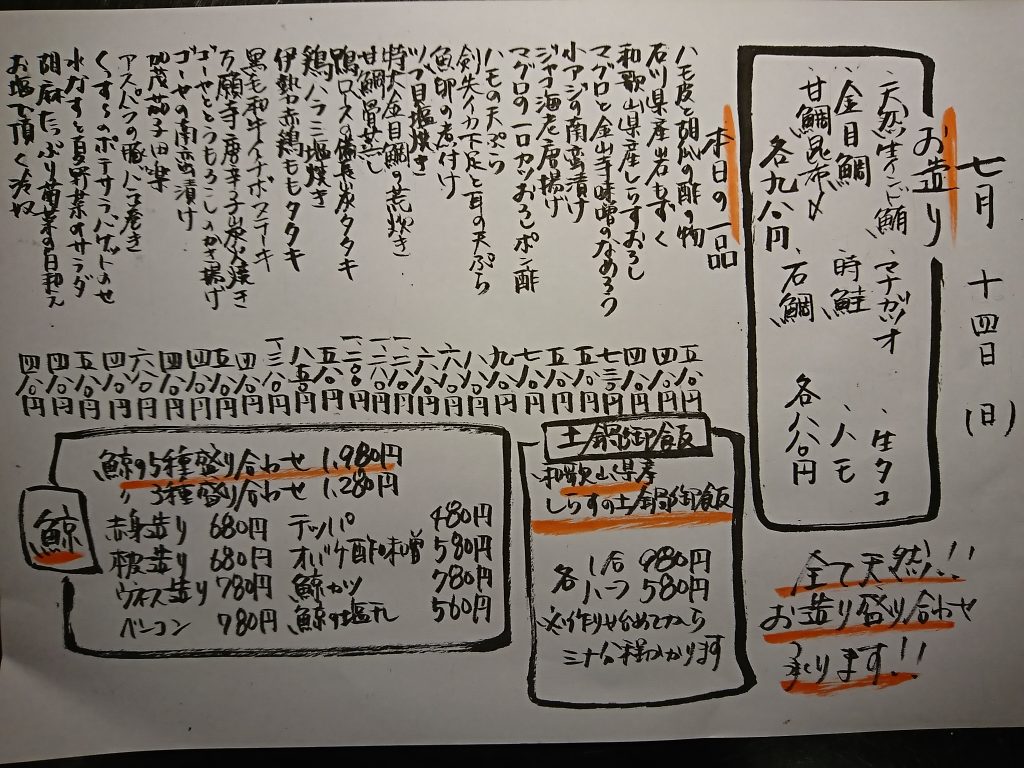 七月 十四日(日)
お造り
、天然生インド鮪 、マナガツオ 、生タコ
、金目鯛 、時鮭 、ハモ
、甘鯛昆布〆 、石鯛
各九八〇円 各八八〇円
全て天然!!
お造り盛り合わせ
承ります!!
本日の一品
ハモ皮と胡瓜の酢の物 五八〇円
石川県産岩もずく 四八〇円
和歌山県産しらすおろし 四八〇円
マグロと金山寺味噌のなめろう 七三〇円
小アジの南蛮漬け 五八〇円
海老唐揚げ 五八〇円
マグロの一口カツおろしポン酢 七八〇円
ハモの天ぷら 九八〇円
剣先イカ下足と耳の天ぷら 八八〇円
魚卵の煮付け 六八〇円
ツブ貝塩焼き 六八〇円
特大金目鯛の荒炊き
甘鯛骨蒸し
鴨ロースの備長炭タタキ
鶏ハラミ塩焼き 五八〇円
伊勢赤鶏ももタタキ 八五〇円
黒毛和牛イチボステーキ 一三八〇円
万願寺唐辛子炭火焼き 四八〇円
ゴーヤととうもろこしのかき揚げ 五八〇円
ゴーヤの南蛮漬け 四八〇円
加茂茄子田楽 四八〇円
アスパラの豚バラ巻き 六八〇円
ポテサラバゲットのせ 四八〇円
水なすと夏野菜のサラダ 五八〇円
胡麻たっぷり菊菜の白和え 四八〇円
お塩で頂く冷奴 四八〇円
土鍋御飯
和歌山県産
しらすの土鍋御飯
各 1合 980円
ハーフ 580円
※作り始めてから
三十分程かかります
鯨
鯨の5種盛り合わせ 1,980円
〃 3種盛り合わせ 1,280円
赤身造り 680円 テッパ 480円
本皮造り 680円 オバケ酢味噌 580円
ウネス造り 780円 鯨カツ 780円
ベーコン 980円 鯨の塩丸 560円